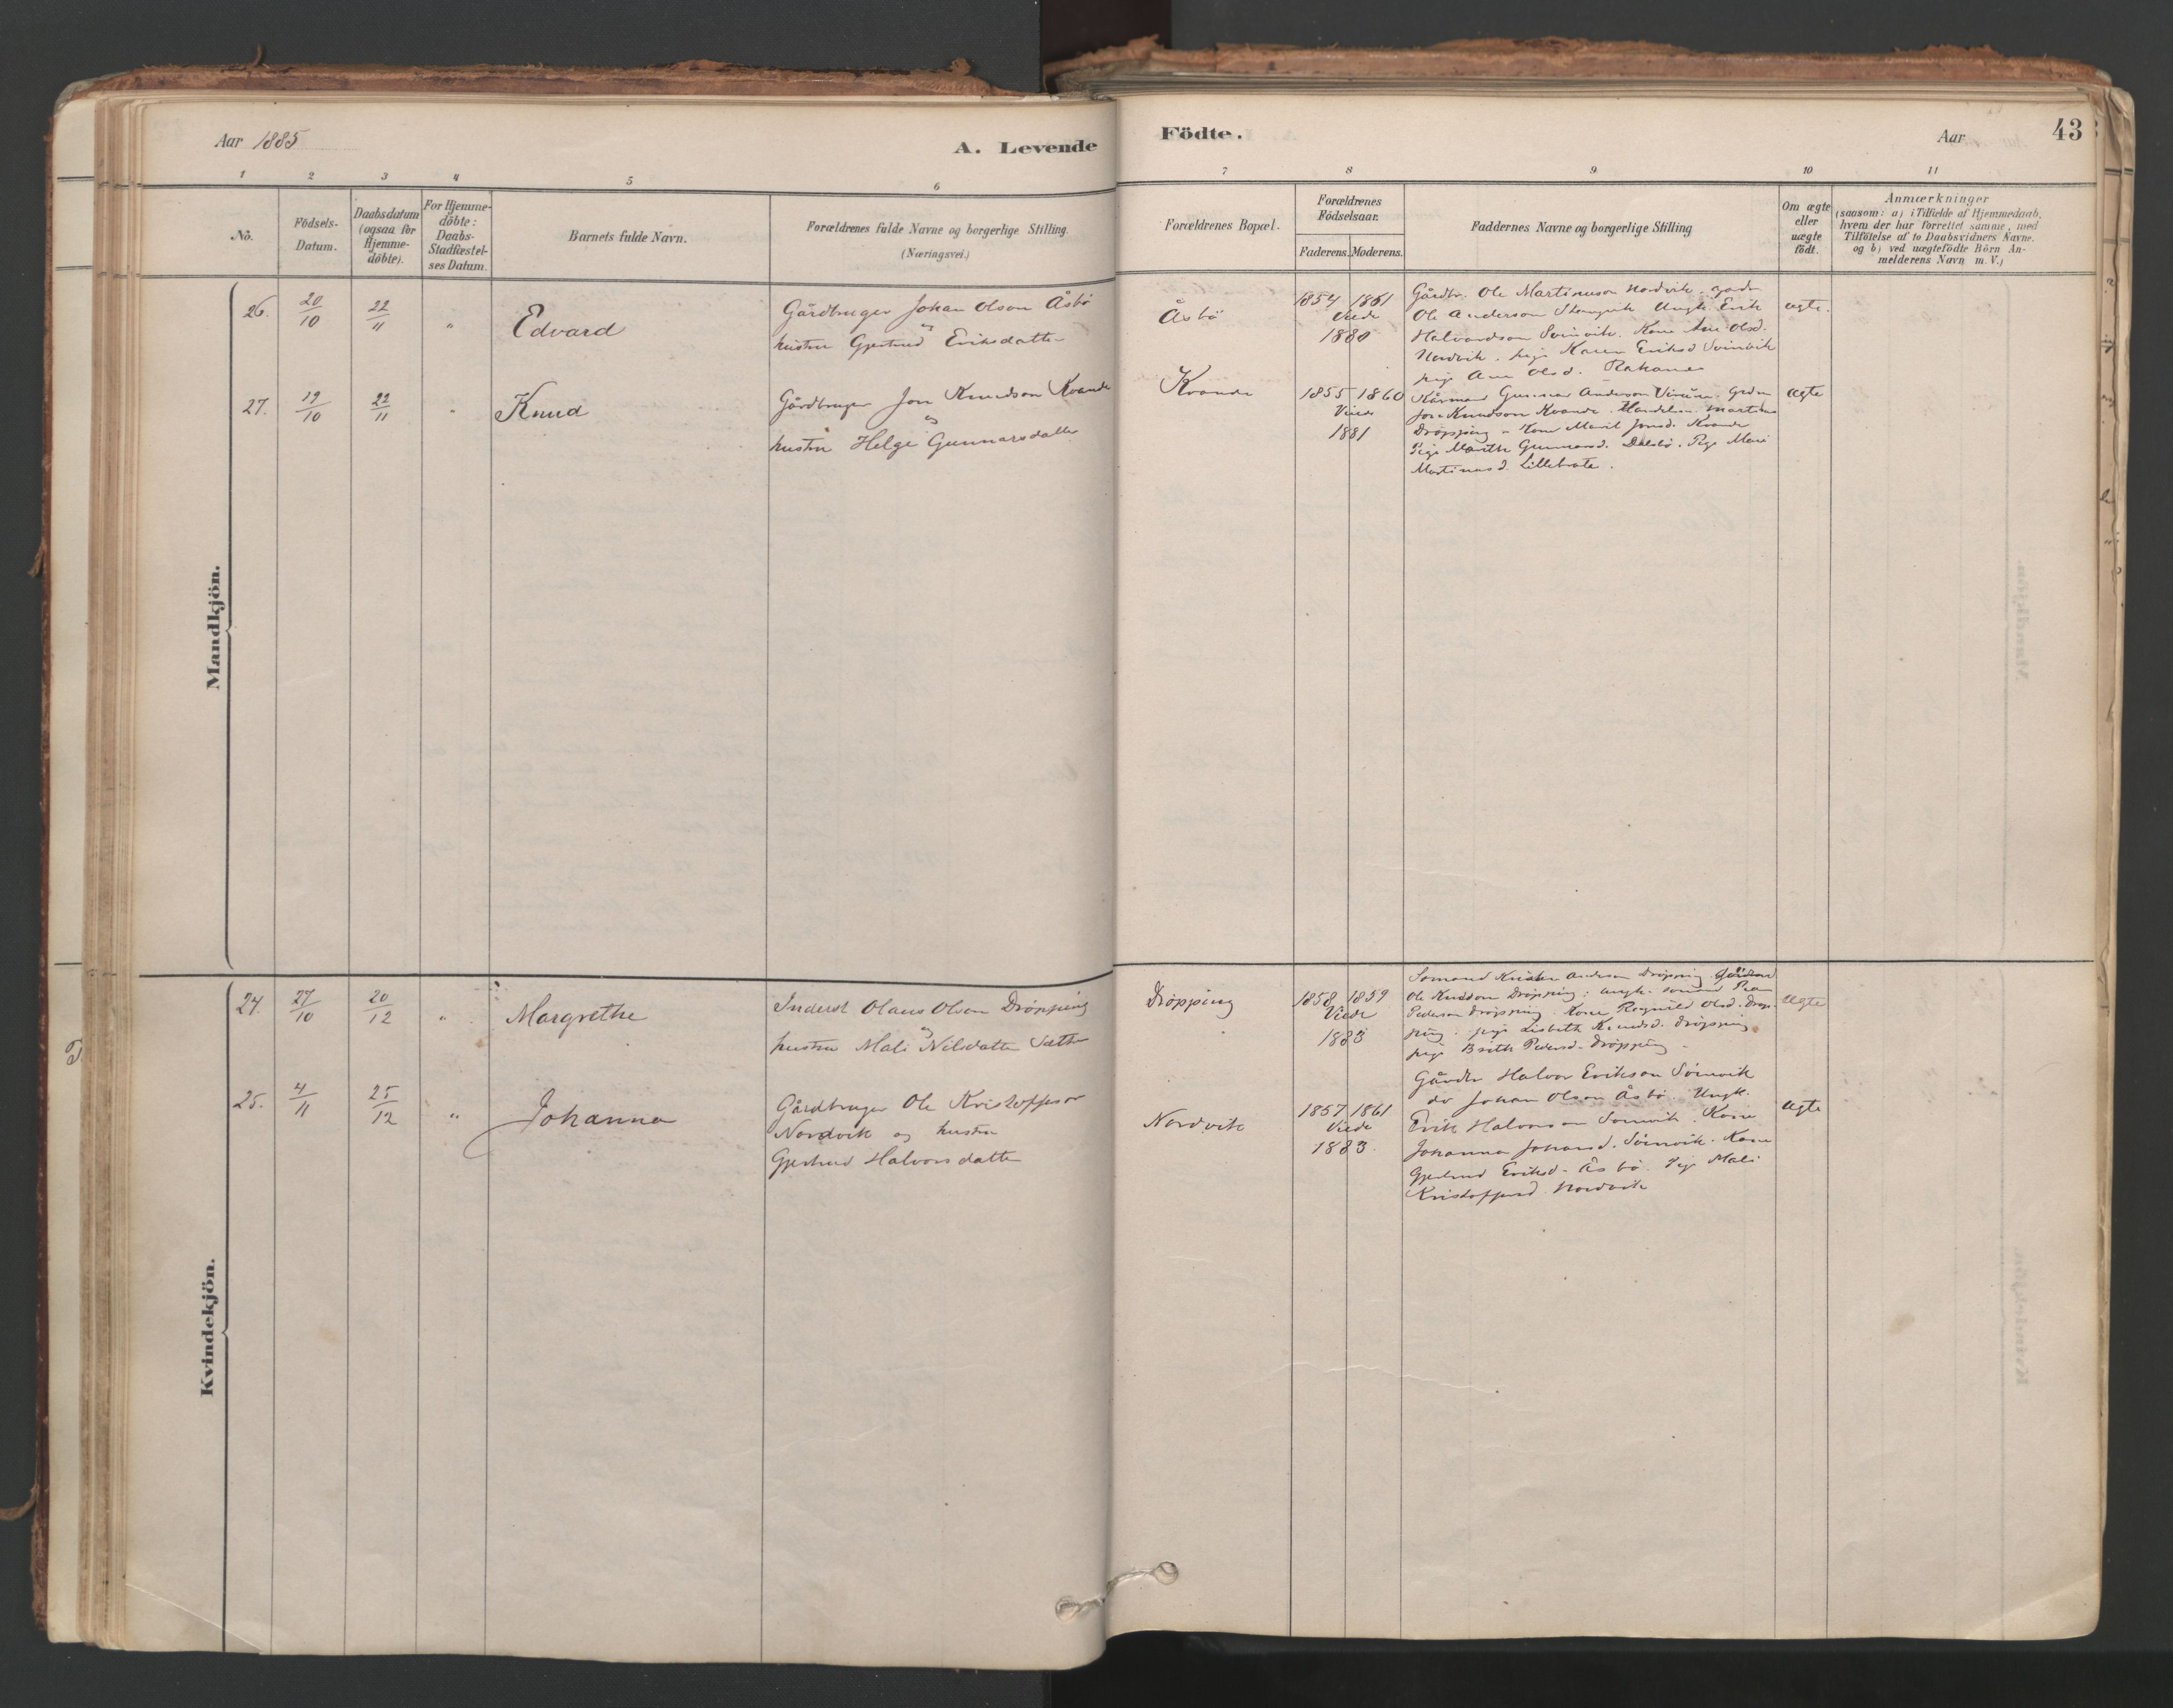 Aar 1885
A. Levende
1 2 3 4 5 6
No.
Födsels-
Datum.
Daabsdatum
(ogsaa for
Hjemme-
döbte).
For Hjemme-
döbte:
Daabs-
Stadfæstel-
ses Datum.
Barnets fulde Navn.
Forældrenes fulde Navne og borgerlige Stilling.
(Næringsvei.)
Mandkjön.
26. 20/10 22/11 " Edvard
Gårdbruger Johan Olson Åsbö
og
hustru Gjertrud Eriksdatter
27. 19/10 22/11 " Knud
Gårdbruger Jon Knudson Kvande
og
hustru Helge Gunnarsdatter
Kvindekjön.
24. 27/10 20/12 " Margrethe
Inderst Olaus Olson Dröpping
og
hustru Mali Nilsdatter Sæther
25. 4/11 25/12 " Johanna
Gårdbruger Ole Kristoffson
Nordvik og hustru
Gjertrud Halvorsdatter
Födte.
Aar
43
7 8 9 10 11
Forældrenes Bopæl.
Forældrenes
Födselsaar.
Faderens. Moderens.
Faddernes Navne og borgerlige Stilling
Om ægte
eller
uægte
födt.
Anmærkninger
(saasom: a) i Tilfælde af Hjemmedaab,
hvem der har forrettet samme, med
Tilföielse af to Daabsvidners Navne.
og b) ved uægtefödte Börn An-
melderens Navn m. V.)
Åsbö
1854 1861
Viede
1880
Gårdbr. Ole Martinuson Nordvik. gårdbr
Ole Anderson Ungk. Erik
Halvardson Svinvik. Kone Ane Olsd.
Nordvik. pige Karen Eriksd Svinvik
pige Ane Olsd.
ægte.
Kvande
1855 1860
Viede
1881
Kårmand Gunnar Anderson
Jon Knudson Kvande. Handelsm. Martinus
Dröpping. Kone Marit Jonsd. Kvande
Pige Marith Gunnarsd. Pige Mari
Martinusd. Lillebrate.
ægte
Dröpping
1858 1859
Viede
1883
Somand Anderson Dröpping.
Ole Knudson Dröpping; ungk. somand
Pederson Dröpping. Kone Ragnild Olsd. Dröp-
ping. pige Lisbeth Knudsd. Dröpping
pige Brith Pedersd. Dröpping
ægte
Nordvik
1857 1861
Viede
1883.
Gårdbr Halvor Erikson Svinvik
do Johan Olson Åsbö. Ungk.
Erik Halvorson Svinvik. Kone
Johanna Johansd. Svinvik. Kone
Gjertrud Eriksd. Åsbö. Pige Mali
Kristoffersd. Nordvik
ægte